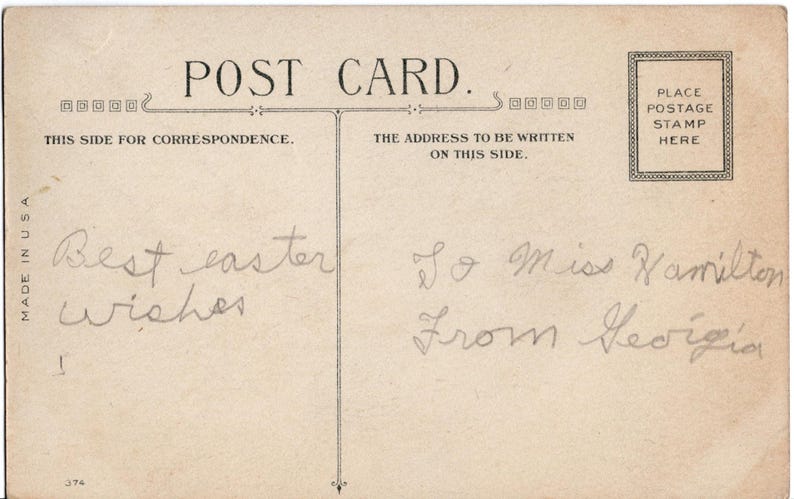 POST CARD.
THIS SIDE FOR CORRESPONDENCE.
THE ADDRESS TO BE WRITTEN
ON THIS SIDE.
PLACE
POSTAGE
STAMP
HERE
MADE IN USA
Best easter
wishes
!
To Miss Hamilton
From Georgia
374